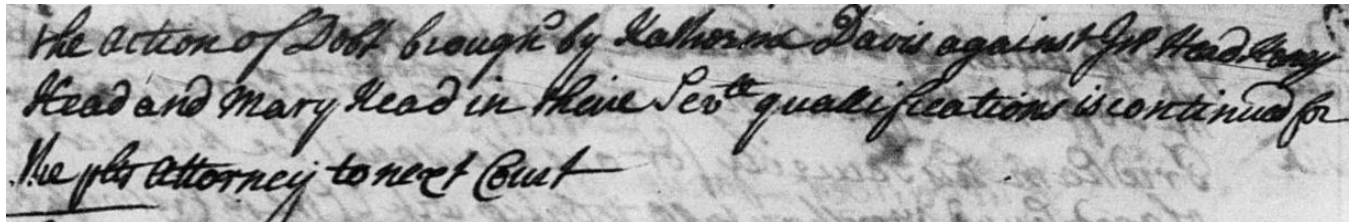 the action of Debt brough^t by Katherine Davis against Jn° Head Henry
Head and Mary Head in theire Sev^ll quallifications is continued for
the plts Attorney to next Court